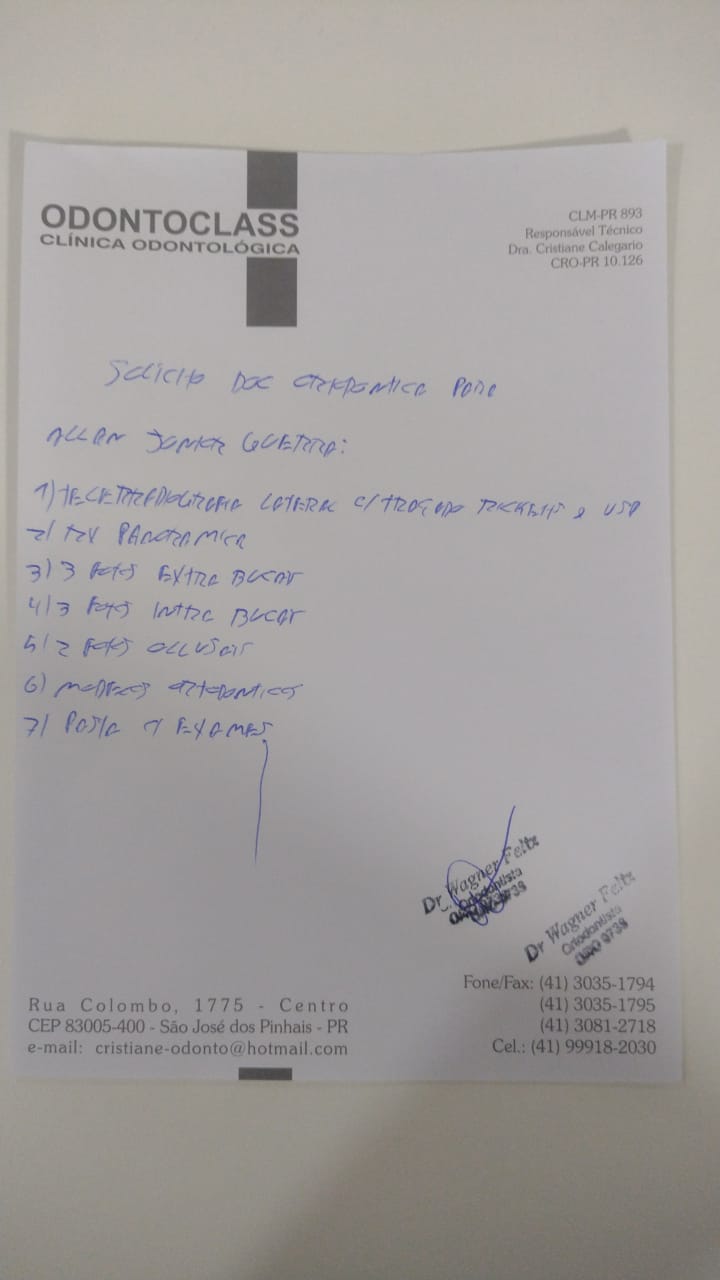 ODONTOCLASS
CLÍNICA ODONTOLÓGICA
CLM-PR 893
Responsável Técnico
Dra. Cristiane Calegario
CRO-PR 10.126
Solicito DOC ortodontica para
ALLAN JUNIOR GUERRA:
1) TELERRADIOGRAFIA LATERAL c/ TRAÇADO RICKETTS e USP
2) RX PANORAMICA
3) 3 fotos EXTRA BUCAIS
4) 3 fotos INTRA BUCAIS
5) 2 fotos OCLUSAIS
6) MODELOS ORTODONTICOS
7) PASTA c/ EXAMES
Dr. Wagner Felix
Ortodontista
Dr Wagner Felix
Ortodontista
CRO 9738
Fone/Fax: (41) 3035-1794
(41) 3035-1795
(41) 3081-2718
Cel.: (41) 99918-2030
Rua Colombo, 1775 - Centro
CEP 83005-400 - São José dos Pinhais - PR
e-mail: cristiane-odonto@hotmail.com